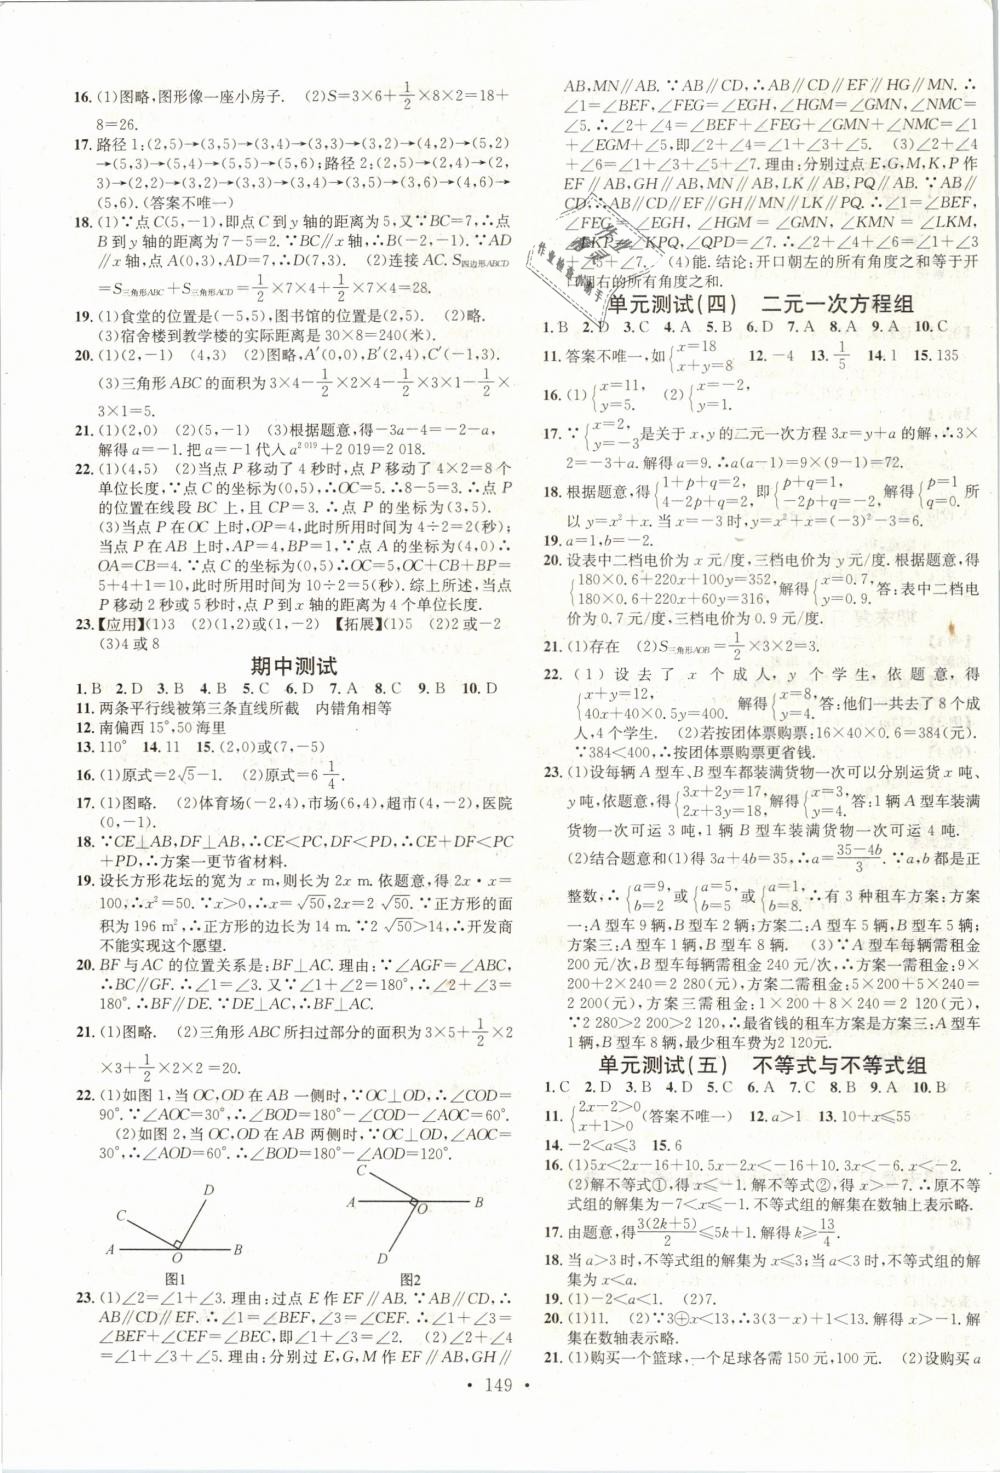 16. (1)图略,图形像一座小房子. (2)S=3×6+1/2×8×2=18+
8=26.
17. 路径1:(2,5)→(3,5)→(3,4)→(3,3)→(3,2)→(4,2)→(5,2)
→(5,3)→(5,4)→(5,5)→(5,6);路径2:(2,5)→(2,4)→(2,
3)→(2,2)→(3,2)→(3,3)→(3,4)→(3,5)→(3,6)→(4,6)→
(5,6).(答案不唯一)
18. (1)∵点C(5,-1),即点C到y轴的距离为5,又∵BC=7,∴点
B到y轴的距离为7-5=2.∵BC∥x轴,∴B(-2,-1).∵AD
∥x轴,点A(0,3),AD=7,∴D(7,3). (2)连接AC.S四边形ABCD
=S三角形ABC+S三角形ACD=1/2×7×4+1/2×7×4=28.
19. (1)食堂的位置是(-5,5),图书馆的位置是(2,5). (2)略.
(3)宿舍楼到教学楼的实际距离是8×30=240(米).
20. (1)(2,-1) (4,3) (2)图略,A′(0,0),B′(2,4),C′(-1,3).
(3)三角形ABC的面积为3×4-1/2×2×4-1/2×3×1-1/2×
3×1=5.
21. (1)(2,0) (2)(5,-1) (3)根据题意,得-3a-4=-2-a,
解得a=-1.把a=-1代入a^2 019+2 019=2 018.
22. (1)(4,5) (2)当点P移动了4秒时,点P移动了4×2=8个
单位长度,∵点C的坐标为(0,5),∴OC=5.∴8-5=3.∴点P
的位置在线段BC上,且CP=3.∴点P的坐标为(3,5).
(3)当点P在OC上时,OP=4,此时所用时间为4÷2=2(秒);
当点P在AB上时,AP=4,BP=1,∵点A的坐标为(4,0)∴
OA=CB=4.∵点C的坐标为(0,5)∴OC=5,OC+CB+BP=
5+4+1=10,此时所用时间为10÷2=5(秒).综上所述,当点
P移动2秒或5秒时,点P到x轴的距离为4个单位长度.
23. 【应用】(1)3 (2)(1,2)或(1,-2) 【拓展】(1)5 (2)2或-2
(3)4或8
期中测试
1. B 2. D 3. B 4. B 5. C 6. D 7. A 8. C 9. B 10. D
11. 两条平行线被第三条直线所截 内错角相等
12. 南偏西15°,50海里
13. 110° 14. 11 15. (2,0)或(7,-5)
16. (1)原式=2√5-1. (2)原式=6 1/4.
17. (1)图略. (2)体育场(-2,4),市场(6,4),超市(4,-2),医院
(0,-1).
18. ∵CE⊥AB,DF⊥AB,∴CE<PC,DF<PD,∴CE+DF<PC
+PD,∴方案一更节省材料.
19. 设长方形花坛的宽为x m,则长为2x m.依题意,得2x·x=
100,∴x²=50.∵x>0,∴x=√50,2x=2√50.∵正方形的面
积为196 m²,∴正方形的边长为14 m.∵2√50>14,∴开发商
不能实现这个愿望.
20. BF与AC的位置关系是:BF⊥AC.理由:∵∠AGF=∠ABC,
∴BC∥GF.∴∠1=∠3.又∵∠1+∠2=180°,∴∠2+∠3=
180°.∴BF∥DE.∵DE⊥AC,∴BF⊥AC.
21. (1)图略. (2)三角形ABC所扫过部分的面积为3×5+1/2×2
×3+1/2×2×2=20.
22. (1)如图1,当OC,OD在AB一侧时,∵OC⊥OD,∴∠COD=
90°.∵∠AOC=30°,∴∠BOD=180°-∠COD-∠AOC=60°.
(2)如图2,当OC,OD在AB两侧时,∵OC⊥OD,∠AOC=
30°,∴∠AOD=60°.∴∠BOD=180°-∠AOD=120°.
C D A O B
图1
C A O B D
图2
23. (1)∠2=∠1+∠3.理由:过点E作EF∥AB.∵AB∥CD,∴
AB∥CD∥EF.∴∠1=∠BEF,∠3=∠CEF.∴∠1+∠3=
∠BEF+∠CEF=∠BEC,即∠1+∠3=∠2. (2)∠2+∠4
=∠1+∠3+∠5.理由:分别过E,G,M作EF∥AB,GH∥
AB,MN∥AB.∵AB∥CD,∴AB∥CD∥EF∥HG∥MN.∴
∠1=∠BEF,∠FEG=∠EGH,∠HGM=∠GMN,∠NMC=
∠5.∴∠2+∠4=∠BEF+∠FEG+∠GMN+∠NMC=∠1
+∠EGM+∠5,即∠2+∠4=∠1+∠3+∠5. (3)∠2+∠4
+∠6=∠1+∠3+∠5+∠7.理由:分别过点E,G,M,K,P作
EF∥AB,GH∥AB,MN∥AB,LK∥AB,PQ∥AB.∵AB∥
CD,∴AB∥CD∥EF∥GH∥MN∥LK∥PQ.∴∠1=∠BEF,
∠FEG=∠EGH,∠HGM=∠GMN,∠KMN=∠LKM,
∠LKP=∠KPQ,∠QPD=∠7.∴∠2+∠4+∠6=∠1+∠3
+∠5+∠7. (4)能.结论:开口朝左的所有角度之和等于开
口朝右的所有角度之和.
单元测试(四) 二元一次方程组
1. B 2. D 3. C 4. A 5. B 6. D 7. A 8. A 9. A 10. C
11. 答案不唯一,如{x=18 x+y=8 12. -4 13. 1/5 14. 1 15. 135
16. (1){x=11, y=5. (2){x=-2, y=1.
17. ∵{x=2, y=-3是关于x,y的二元一次方程3x=y+a的解,∴3×
2=-3+a.解得a=9.∴a(a-1)=9×(9-1)=72.
18. 根据题意,得{1+p+q=2, 4-2p+q=2,即{p+q=1, -2p+q=-2,解得{p=1 q=0.所
以y=x²+x.当x=-3时,y=x²+x=(-3)²-3=6.
19. a=1,b=-2.
20. 设表中二档电价为x元/度,三档电价为y元/度.根据题意,得
{180×0.6+220x+100y=352, 180×0.6+220x+60y=316,解得{x=0.7, y=0.9.答:表中二档电
价为0.7元/度,三档电价为0.9元/度.
21. (1)存在 (2)S三角形AOB=1/2×3×2=3.
22. (1)设去了x个成人,y个学生,依题意,得
{x+y=12, 40x+40×0.5y=400,解得{x=8, y=4.答:他们一共去了8个成
人,4个学生. (2)若按团体票购票:16×40×0.6=384(元).
∵384<400,∴按团体票购票更省钱.
23. (1)设每辆A型车、B型车都装满货物一次可以分别运货x吨、
y吨,依题意,得{3x+2y=17, 2x+3y=18,解得{x=3, y=4.答:1辆A型车装满
货物一次可运3吨,1辆B型车装满货物一次可运4吨.
(2)结合题意和(1)得3a+4b=35,∴a=(35-4b)/3.∵a,b都是正
整数,∴{a=9, b=2或{a=5, b=5或{a=1, b=8.∴有3种租车方案:方案
一:A型车9辆,B型车2辆;方案二:A型车5辆,B型车5辆;
方案三:A型车1辆,B型车8辆. (3)∵A型车每辆需租金
200元/次,B型车每辆需租金240元/次,∴方案一需租金:9×
200+2×240=2 280(元),方案二需租金:5×200+5×240=
2 200(元),方案三需租金:1×200+8×240=2 120(元),
∵2 280>2 200>2 120,∴最省钱的租车方案是方案三:A型车
1辆,B型车8辆,最少租车费为2 120元.
单元测试(五) 不等式与不等式组
1. C 2. D 3. D 4. C 5. B 6. A 7. C 8. B 9. A 10. B
11. {2x-2>0 x+1>0(答案不唯一) 12. a>1 13. 10+x≤55
14. -2<a≤3 15. 6
16. (1)5x<2x-16+10.5x-2x<-16+10.3x<-6.x<-2.
(2)解不等式①,得x≤-1.解不等式②,得x>-7.∴原不等
式组的解集为-7<x≤-1.不等式组的解集在数轴上表示略.
17. 由题意,得3(2k+5)/2≤5k+1.解得k≥13/4.
18. 当a>3时,不等式组的解集为x≤3;当a<3时,不等式组的解
集为x<a.
19. (1)-2<a<1. (2)7.
20. (1)11. (2)∵3⊕x<13,∴3(3-x)+1<13.解得x>-1.解
集在数轴表示略.
21. (1)购买一个篮球,一个足球各需150元,100元. (2)设购买a
· 149 ·